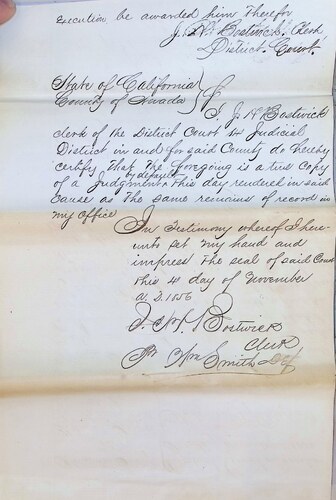 Execution be awarded him therefor
J. H. Bostwick Clerk
District Court.
State of California
County of Nevada
I, J. H. Bostwick
clerk of the District Court 4 Judicial
District in and for said County do hereby
certify that the foregoing is a true copy
by default
of a Judgment this day rendered in said
cause as the same remains of record in
my office
In Testimony whereof I here-
unto set my hand and
impress the seal of said Court
this 4 day of November
A.D. 1856
J. H. Bostwick
Clerk
Pr Wm Smith Dep